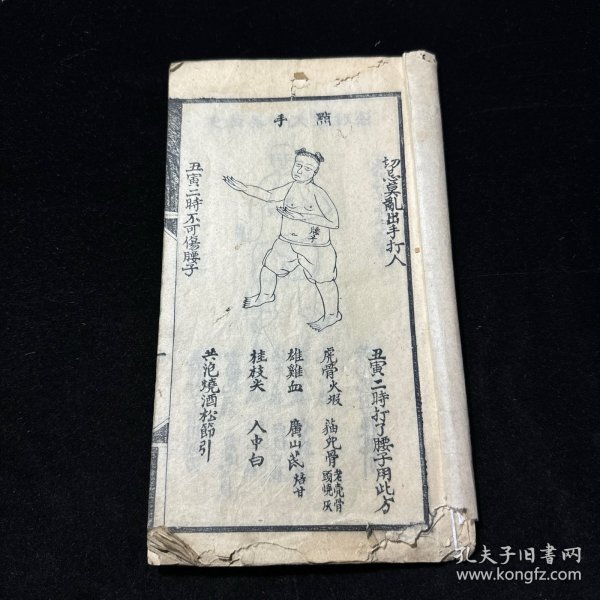 點手
切忌莫亂出手打人
腰子
丑寅二時不可傷腰子
丑寅二時打了腰子用此方
虎骨火煅 貓兒骨
雄雞血 廣山芪
桂枝尖 人中白
共泡燒酒松節引
孔夫子旧书网
www.kongfz.com